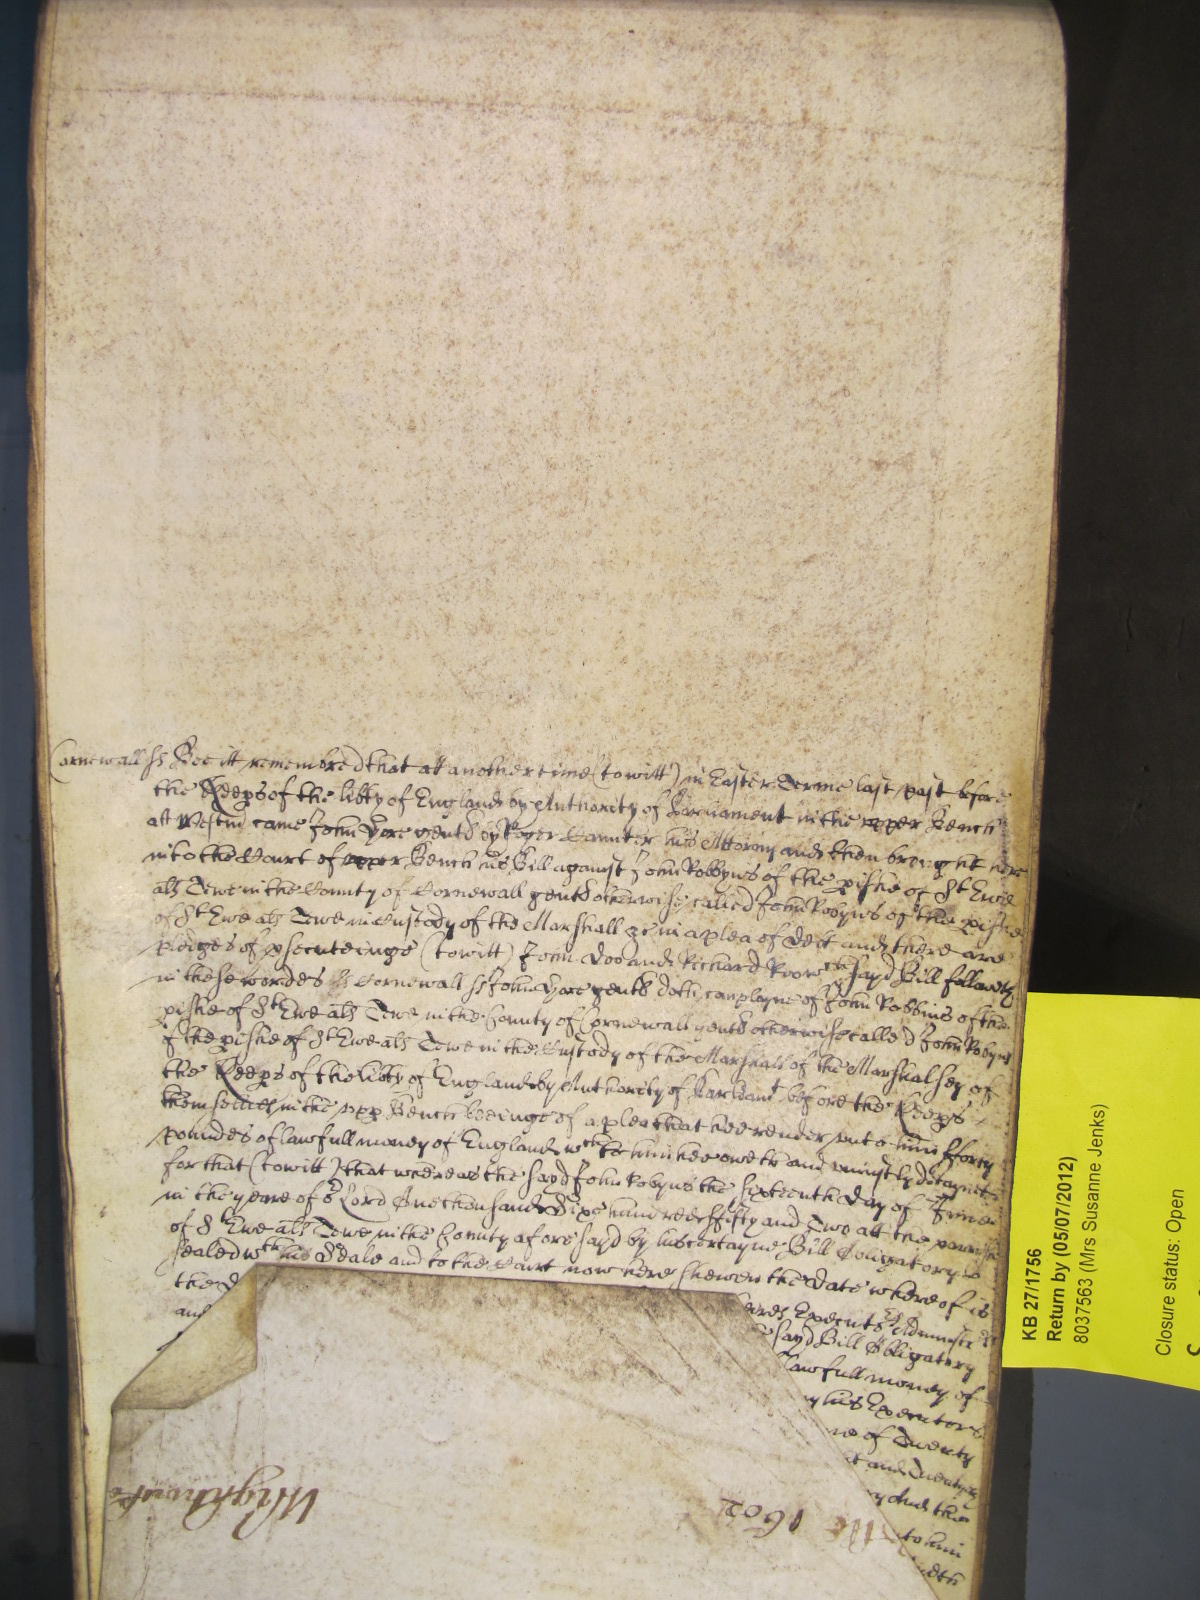 Cornewall ss Bee itt remembred that att another time (to witt) in Easter Terme last past before
the Keeps of the libty of England by Authority of Parliament in the upper Bench
att Westm came John Yore gent by Roger his Attorny and then brought here
into the Court of upper Bench his Bill against John Robbyns of the pishe of St Ewe
als Tewe in the County of Cornewall gent otherwise called John Robyns of the pishe
of St Ewe als Tewe in custody of the Marshall &c in a plea of Debt and there are
pledges of psecuteinge (to witt) John Doo and Richard Roo wch sayd Bill followth
in these wordes ss Cornewall ss John Yore gent doth complayne of John Robbins of the
pishe of St Ewe als Tewe in the County of Cornewall gent otherwise called John Robyns
of the pishe of St Ewe als Tewe in the Custody of the Marshall of the Marshalsey of
the Keeps of the libty of England by Authority of Parliamt before the Keeps
themselves in the upp Bench beeinge of a plea that hee render unto him fforty
poundes of lawfull money of England wch to him hee oweth and uniustly detayneth
for that (to witt) that whereas the sayd John Robyns the sixteenth day of
in the yeare of or Lord One thousand Sixe hundred fifty and Two att the parrishe
of St Ewe als Tewe in the County aforesayd by his certayne Bill Obligatory
sealed wth his Seale and to the Court now here shewen the date whereof is
the
and Executrs Administrs
sayd Bill Obligatory
lawfull money of
his Executors
of Twenty
and Twenty
the
to him
Wightwicke
1652
KB 27/1756
Return by (05/07/2012)
8037563 (Mrs Susanne Jenks)
Closure status: Open